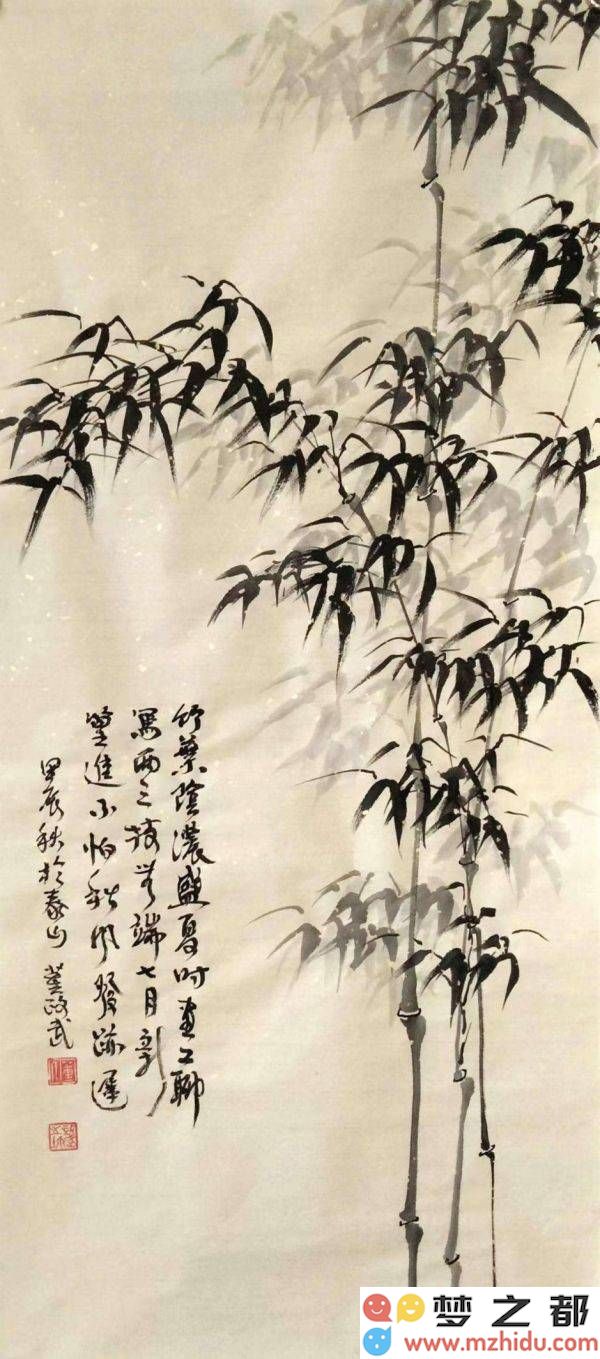 竹葉陰濃盛夏时畫工聊
寫兩三枝無端七月新
篁進不怕秋風發跡遲
甲辰秋於泰山 政武
梦之都
www.mzhidu.com